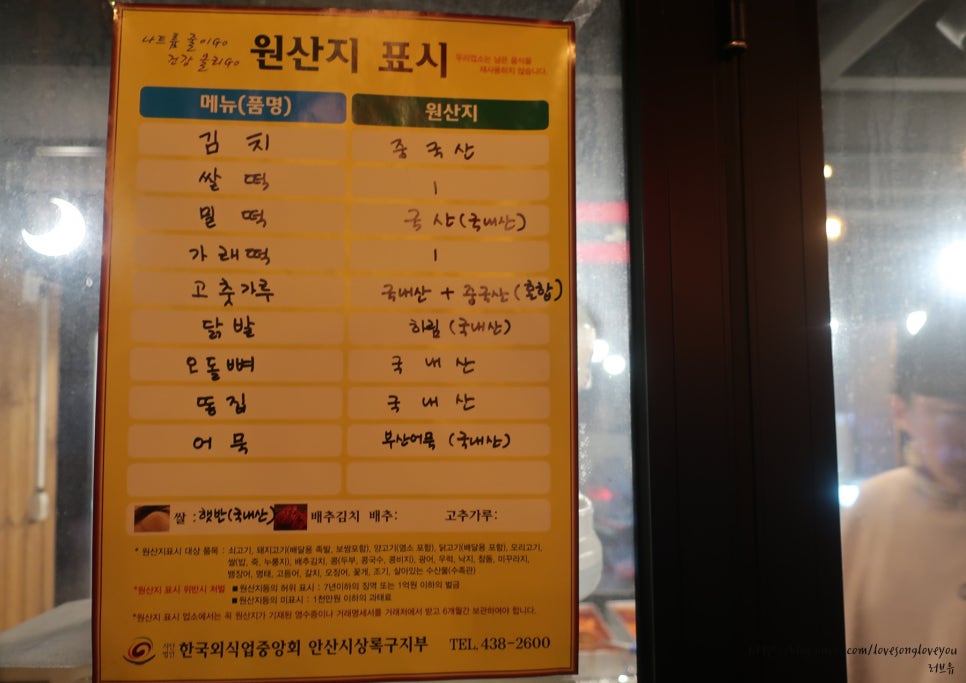 나트륨 줄이Go
건강 올리Go
원산지 표시
우리업소는 남은 음식을
재사용하지 않습니다.
메뉴(품명) 원산지
김 치 중국산
쌀 떡 |
밀 떡 국산(국내산)
가래떡 |
고춧가루 국내산 + 중국산(혼합)
닭발 하림(국내산)
오돌뼈 국내산
똥집 국내산
어묵 부산어묵(국내산)
쌀 : 햇반(국내산) 배추김치 배추: 고추가루:
* 원산지표시 대상 품목 : 쇠고기, 돼지고기(배달용 족발, 보쌈포함), 양고기(염소 포함), 닭고기(배달용 포함), 오리고기,
쌀(밥, 죽, 누룽지), 배추김치, 콩(두부, 콩국수, 콩비지), 광어, 우럭, 낙지, 참돔, 미꾸라지,
뱀장어, 명태, 고등어, 갈치, 오징어, 꽃게, 조기, 살아있는 수산물(수족관)
*원산지 표시 위반시 처벌 ■ 원산지등의 허위 표시 : 7년이하의 징역 또는 1억원 이하의 벌금
■ 원산지등의 미표시 : 1천만원 이하의 과태료
*원산지 표시 업소에서는 꼭 원산지가 기재된 영수증이나 거래명세서를 거래처에서 받고 6개월간 보관하여야 합니다.
사단법인 한국외식업중앙회 안산시상록구지부 TEL. 438-2600
/lovesongloveyou
러브유